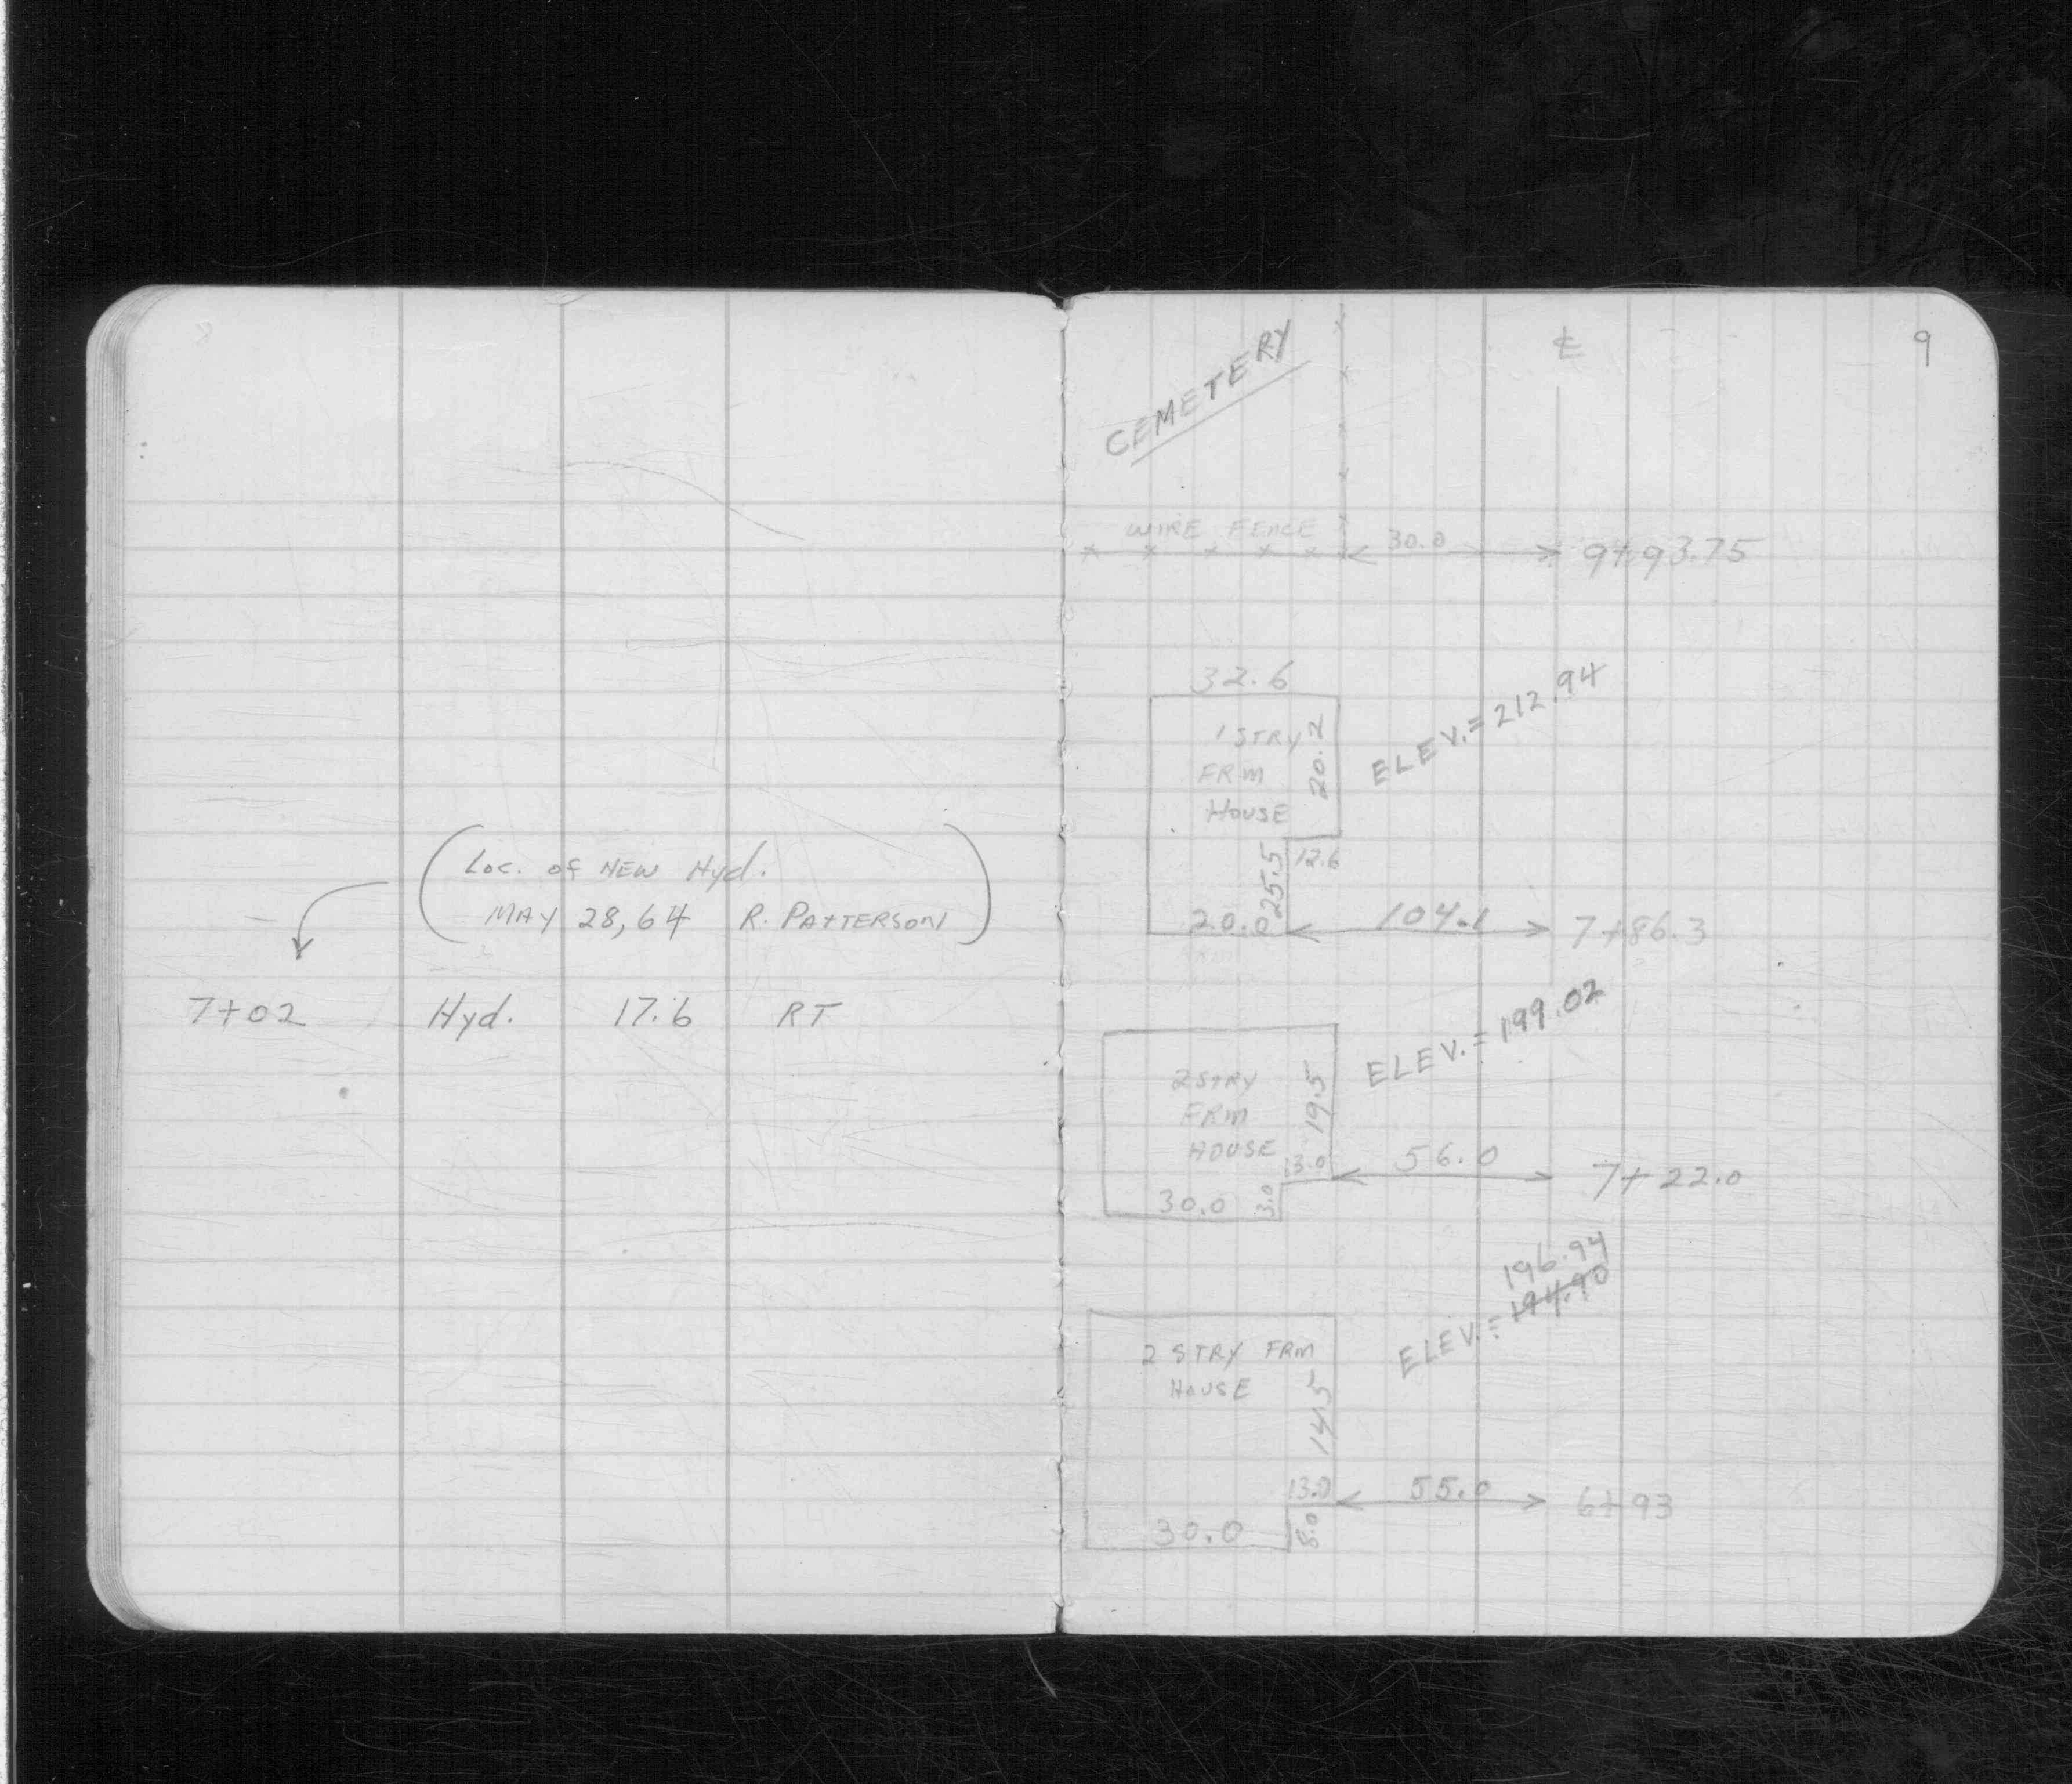 (Loc. of NEW Hyd.
MAY 28, 64 R. PATTERSON)
7+02 Hyd. 17.6 RT
9
℄
CEMETERY
WIRE FENCE 30.0 9+93.75
32.6
1 STRY
FRM
HOUSE
20.2
ELEV. = 212.94
12.6
25.5
20.0 104.1 7+86.3
ELEV. = 199.02
2 STRY
FRM
HOUSE
19.5
13.0 56.0 7+22.0
30.0 3.0
196.94
ELEV. = 194.90
2 STRY FRM
HOUSE
14.5
13.0 55.0 6+93
30.0 8.0